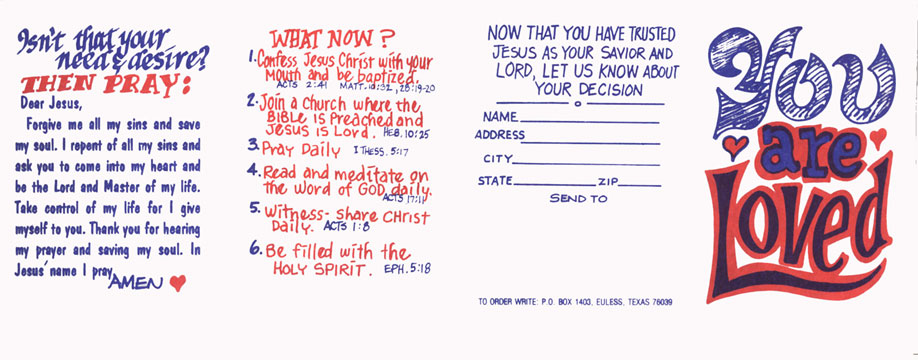 Isn't that your
need & desire?
THEN PRAY:
Dear Jesus,
Forgive me all my sins and save
my soul. I repent of all my sins and
ask you to come into my heart and
be the Lord and Master of my life.
Take control of my life for I give
myself to you. Thank you for hearing
my prayer and saving my soul. In
Jesus' name I pray
AMEN
WHAT NOW?
1. Confess Jesus Christ with your
Mouth and be baptized.
ACTS 2:41 MATT. 10:32, 28:19-20
2. Join a Church where the
BIBLE is Preached and
Jesus is Lord. HEB. 10:25
3. Pray Daily I THESS. 5:17
4. Read and meditate on
the Word of GOD daily.
ACTS 17:11
5. Witness- share CHrist
Daily. ACTS 1:8
6. Be filled with the
HOLY SPIRIT. EPH. 5:18
NOW THAT YOU HAVE TRUSTED
JESUS AS YOUR SAVIOR AND
LORD, LET US KNOW ABOUT
YOUR DECISION
NAME
ADDRESS
CITY
STATE ZIP
SEND TO
TO ORDER WRITE: P.O. BOX 1403, EULESS, TEXAS 76039
You
are
Loved